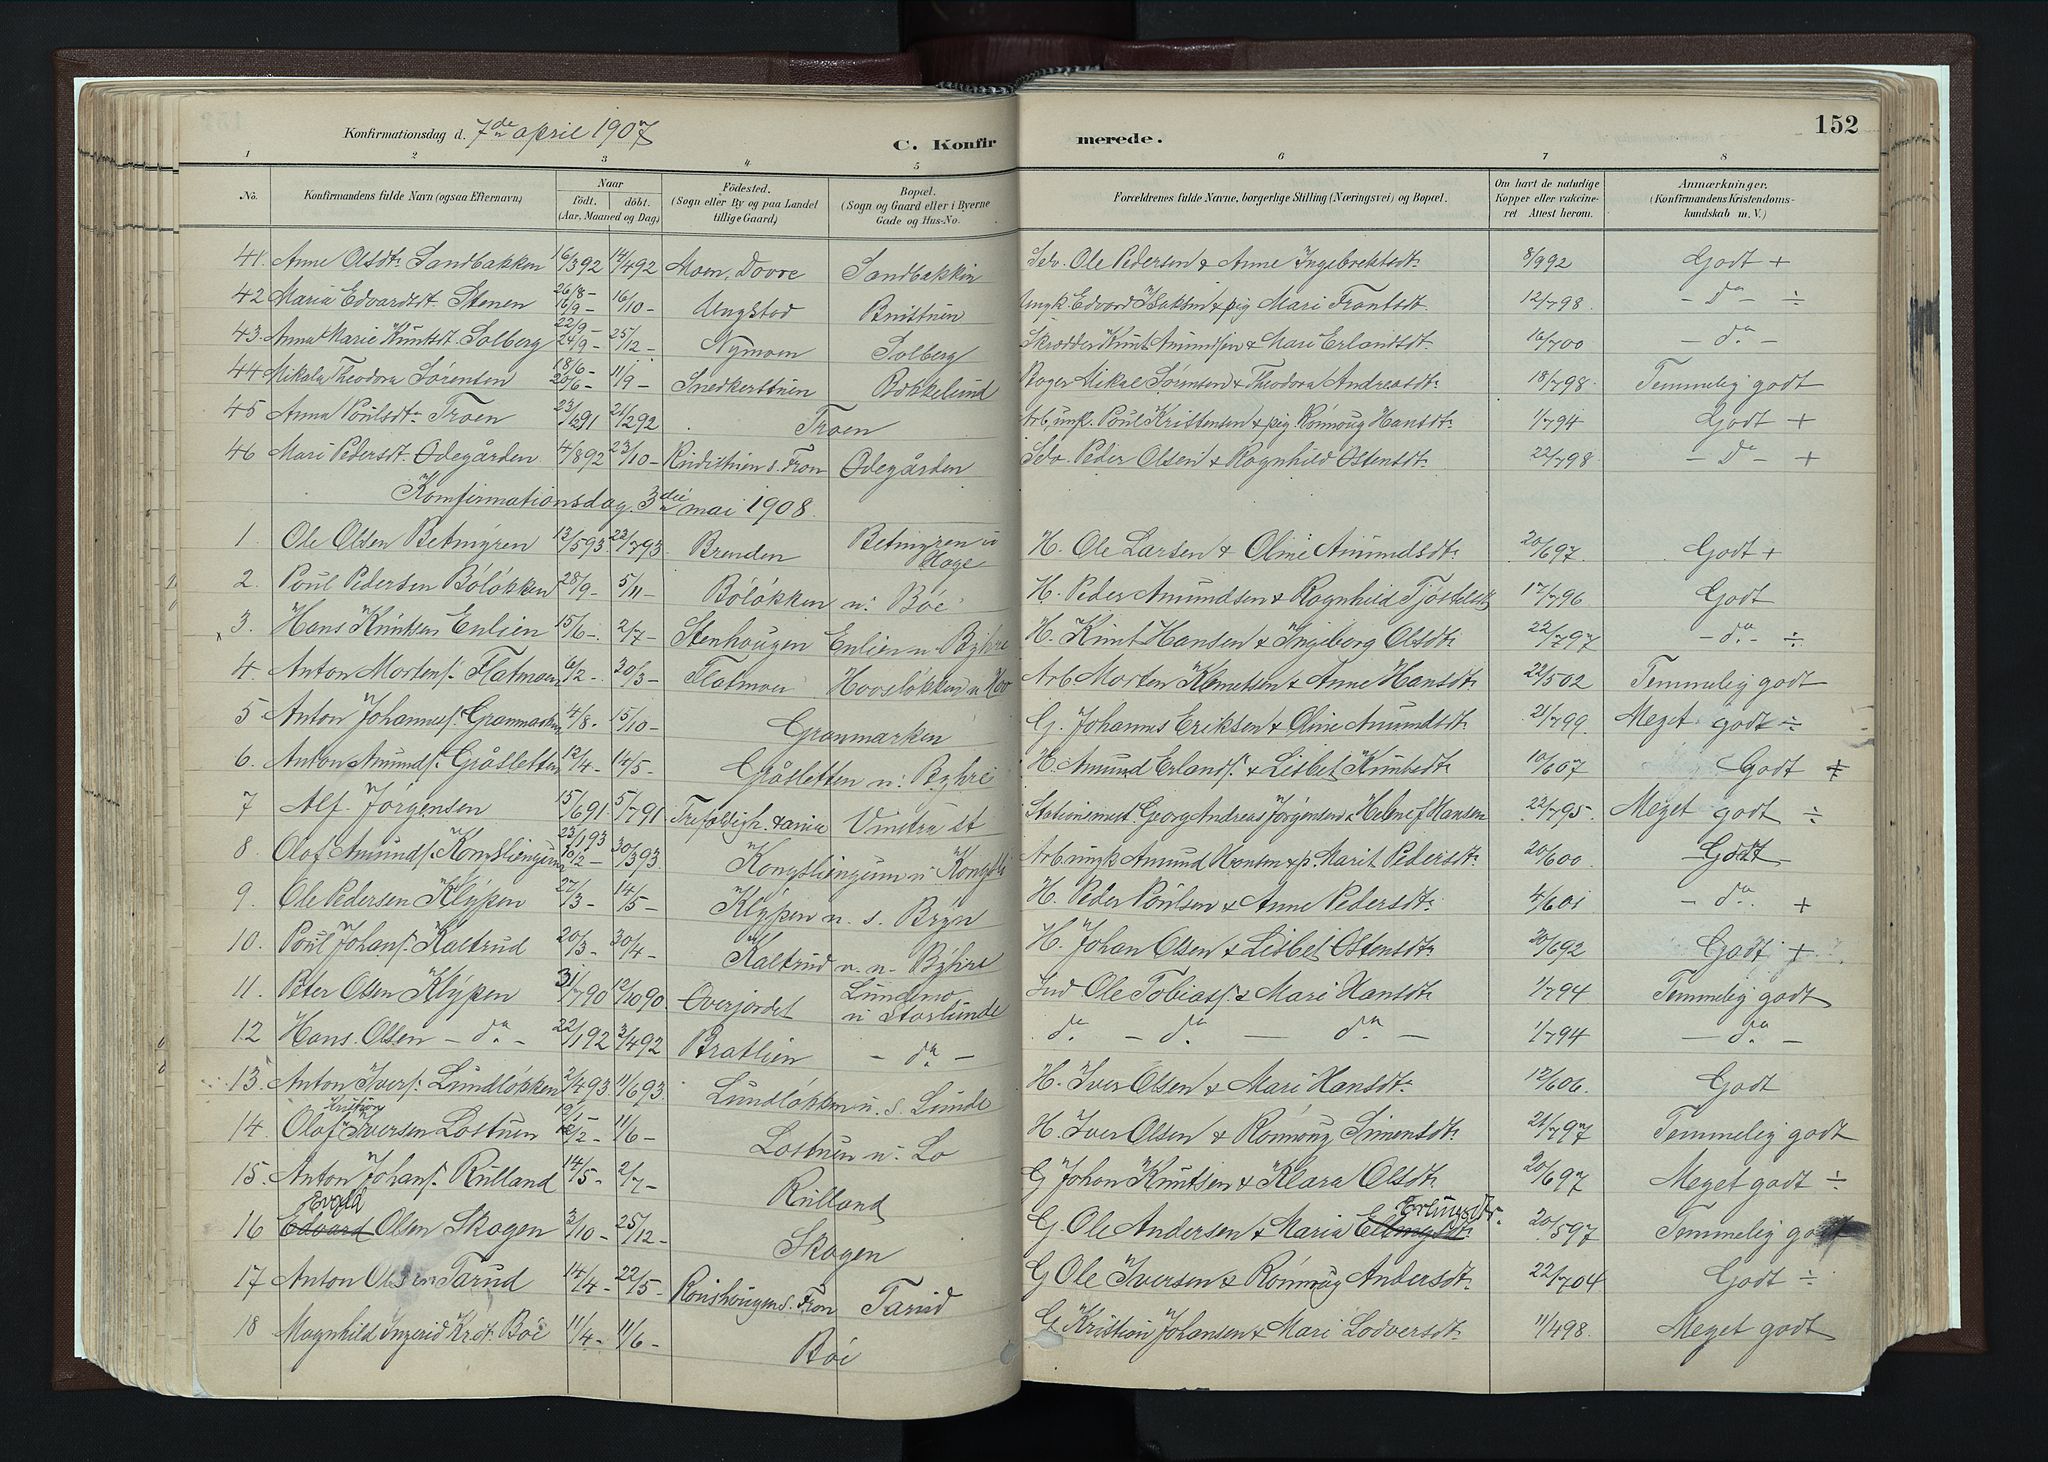 152
Konfirmationsdag d. 7de april 1907
C. Konfirmerede.
1 2 3 4 5 6 7 8
No. Konfirmandens fulde Navn (ogsaa Efternavn) Naar født. døbt. (Aar, Maaned og Dag) Fødested. (Sogn eller By og paa Landet tillige Gaard) Bopæl. (Sogn og Gaard eller i Byerne Gade og Hus-No. Forældrenes fulde Navne, borgerlige Stilling (Næringsvei) og Bopæl. Om havt de naturlige Kopper eller vaccineret Attest herom. Anmærkninger. (Konfirmandens Kristendomskundskab m. V.)
41. Anne Olsdtr Sandbakken 16/392 14/492 Moen, Dovre Sandbakken Selv. Ole Pedersen & Anne Ingebrektsdtr 8/992 Godt +
42 Maria Edvardsdt. Stenen 26/8- 16/9- 16/10- Ungstad Ungk. Edvard Isaksen & pig Mari Frantsdt. 12/798. - da - ÷
43. Anna Marie Knutsdt. Solberg 22/9- 24/9- 25/12- Nymoen Solberg Skrædder Knut Amundsen & Mari Erlandsdt. 16/700 - da -
44 Mikala Theodora Sørensen 18/6- 20/6- 11/9- Snedkerstuen Bakkelund Bager Mikal Sørensen & Theodora Andreasdtr 18/798. Temmelig godt
45 Anna Poulsdtr Troen 23/1291 21/292 Troen Arb. unk. Poul Kristensen & pig Rønnoug Hansdtr 1/794 Godt +
46 Mari Pedersdt. Ødegården 4/892 23/10- s. Fron Ødegården Selv. Peder Olsen & Ragnhild Ostensdt. 22/798 - da - +
Konfirmationsdag 3die mai 1908.
1. Ole Olsen Betmyren 12/593 22/793. Brenden Betmyren u Hage H. Ole Larsen & Oline Amundsdt. 20/697. Godt +
2. Poul Pedersen Böløkken 28/9- 5/11- Böløkken u. Böe H. Peder Amundsen & Ragnhild 17/796 Godt
3. Hans Knutsen Enlien 15/6-. 2/7- Stenhougen Enlien u. Byhre H. Knut Hansen & Ingeborg Olsdt. 22/797 - da - ÷
4. Anton Mortens. Flatmoen 6/2-. 30/3- Flatmoen Hovsløkken u Hov Arb Morten Klemetsen & Anne Hansdt. 22/502 Temmelig godt
5 Anton Johannes. Granmarken 4/8-. 15/10- Granmarken G. Johannes Eriksen & Oline Amundsdt. 21/799. Meget godt ÷
6. Anton Amunds. Gråsletten 12/4- 14/5- Gråsletten u. Byhre H. Amund Erlands. & Lisbet Knutsdt. 10/607 Godt +
7 Alf Jørgensen 15/691 5/791 Vinstra st Stationsmest. Georg Andreas Jørgensen & Helene f. Hansen 22/795. Meget godt ÷
8. Olaf Amunds. Kongsliengum 23/193 10/2- 30/393. Kongsliengum u. Kongsli Arb ungk Amund Hansen & p. Marit Pedersdt. 20/600 Godt
9. Ole Pedersen Klypen 27/3- 14/5- Klypen u. s. Bryn H. Peder Poulsen & Anne Pedersdt. 4/601 - da. +
10. Poul Johans. Kaltrud 20/3- 30/4- Kaltrud u. n. Byhre H. Johan Olsen & Lisbet Ostensdtr 30/692 Godt +
11. Peter Olsen Klypen 31/790 12/1090. Overjordet Lundemo u Storlunde Ind Ole Tobias. & Mari Hansdt. 1/794 Temmelig godt
12 Hans. Olsen - da. - 22/192 3/492 Bratlien - da - da. - da. - da. - 1/794 - da. -
13. Anton Ivers. Lundløkken 2/493. 11/693. Lundløkken u. s. Lunde H. Iver Olsen & Mari Hansdt. 12/606. Godt
14. Olaf Kristian Iversen Lostuen 12/2- 11/6- Lostuen u. Lo H. Iver Olsen & Rønnoug Simensdt. 21/797 Temmelig godt
15. Anton Johans. Rulland 14/5- 2/7- Rulland G Johan Knutsen & Klara Olsdt. 20/697 Meget godt ÷
Evald Erlingsdtr.
16 Edvard Olsen Skogen 3/10- 25/12- Skogen G. Ole Andersen & Maria Ellingsdt. 20/597 Temmelig godt
17. Anton Olsen Tarud 14/4- 22/5- Rønshougen s. Fron Tarud G Ole Iversen & Rønnoug Andersdt. 22/704. Godt ÷
18 Magnhild Ingerid Krdt. Böe 11/4- 11/6- Böe G Kristian Johansen & Mari Lodversdt. 11/498. Meget godt